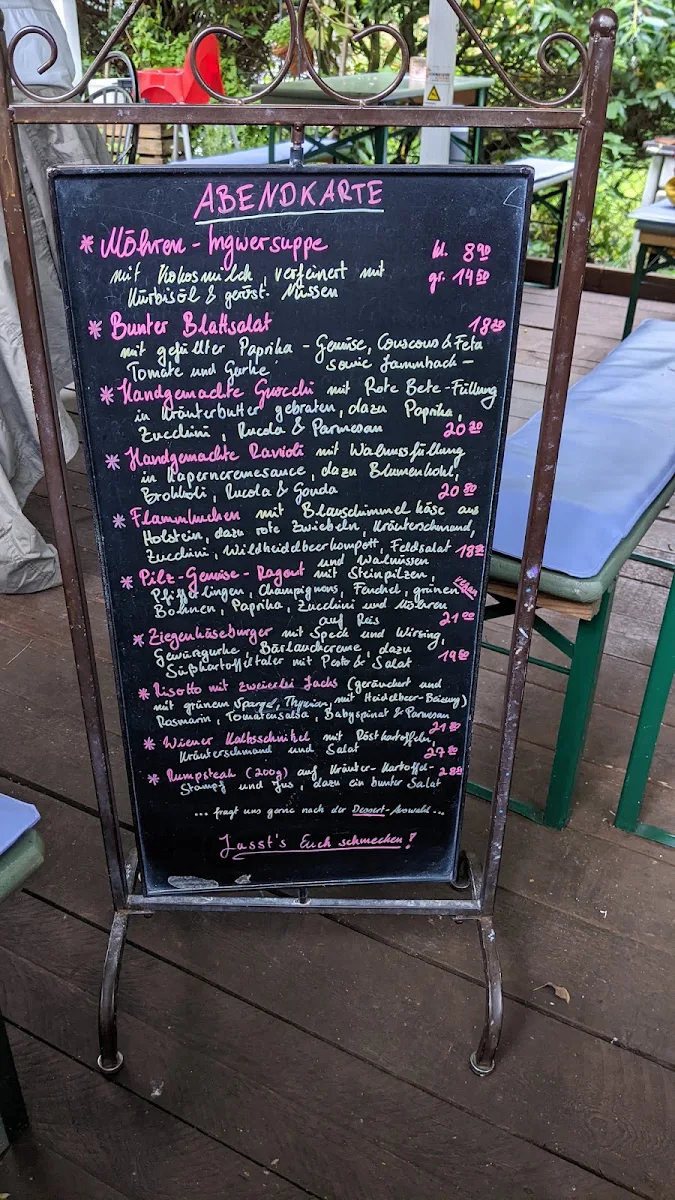 ABENDKARTE
* Möhren - Ingwersuppe kl. 8⁹⁰
mit Kokosmilch, verfeinert mit gr. 14⁵⁰
Kürbisöl & geröst. Nüssen
* Bunter Blattsalat 18²⁰
mit gefüllter Paprika - Gemüse, Couscous & Feta
Tomate und Gurke sowie
* Handgemachte Gnocchi mit Rote Bete-Füllung
in Kräuterbutter gebraten, dazu Paprika,
Zucchini, Rucola & Parmesan 20²⁰
* Handgemachte Ravioli mit Walnussfüllung
in Kaperncremesauce, dazu Blumenkohl,
Brokkoli, Rucola & Gouda 20⁸⁰
* Flammkuchen mit Blauschimmelkäse aus
Holstein, dazu rote Zwiebeln, Kräuterschmand,
Zucchini, Wildheidelbeerkompott, Feldsalat
und Walnüssen
* Pilz-Gemüse-Ragout mit Steinpilzen,
Pfifferlingen, Champignons, Fenchel, grünen vegan
Bohnen, Paprika, Zucchini und Möhren
auf Reis 21⁰⁰
* Ziegenkäseburger mit Speck und Wirsing,
Gewürzgurke, Bärlauchcreme, dazu
Süßkartoffeltaler mit Pesto & Salat
* Risotto mit zweierlei Lachs (geräuchert und
mit grünem Spargel, Thymian mit Heidelbeer-Beizung)
Rosmarin, Tomatensalsa, Babyspinat & Parmesan
* Wiener Kalbsschnitzel mit Röstkartoffeln,
Kräuterschmand und Salat
* Rumpsteak (200g) auf Kräuter-Kartoffel-
Stampf und Jus, dazu ein bunter Salat
... fragt uns gerne nach der Dessert-Auswahl ...
Lasst's Euch schmecken!